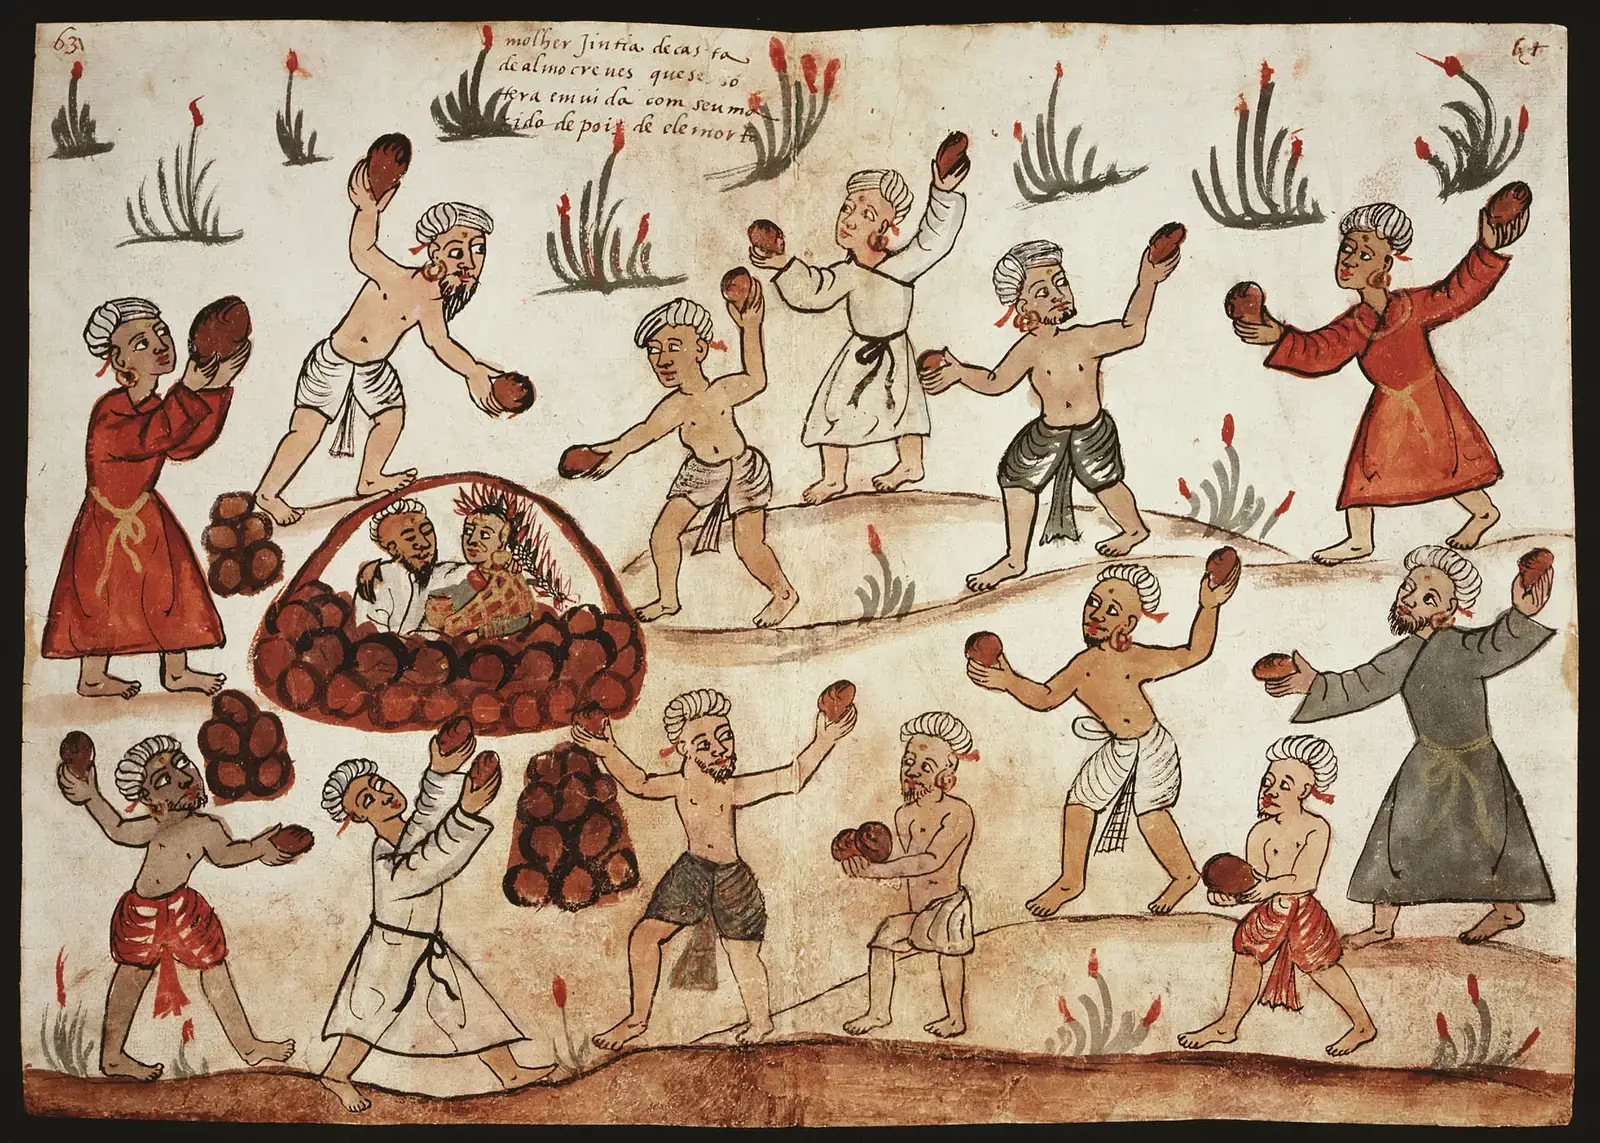 63
molher Jintia de cas ta
de almocreves que se só
tera em vi da com seu ma
rido depois de ele morto
64